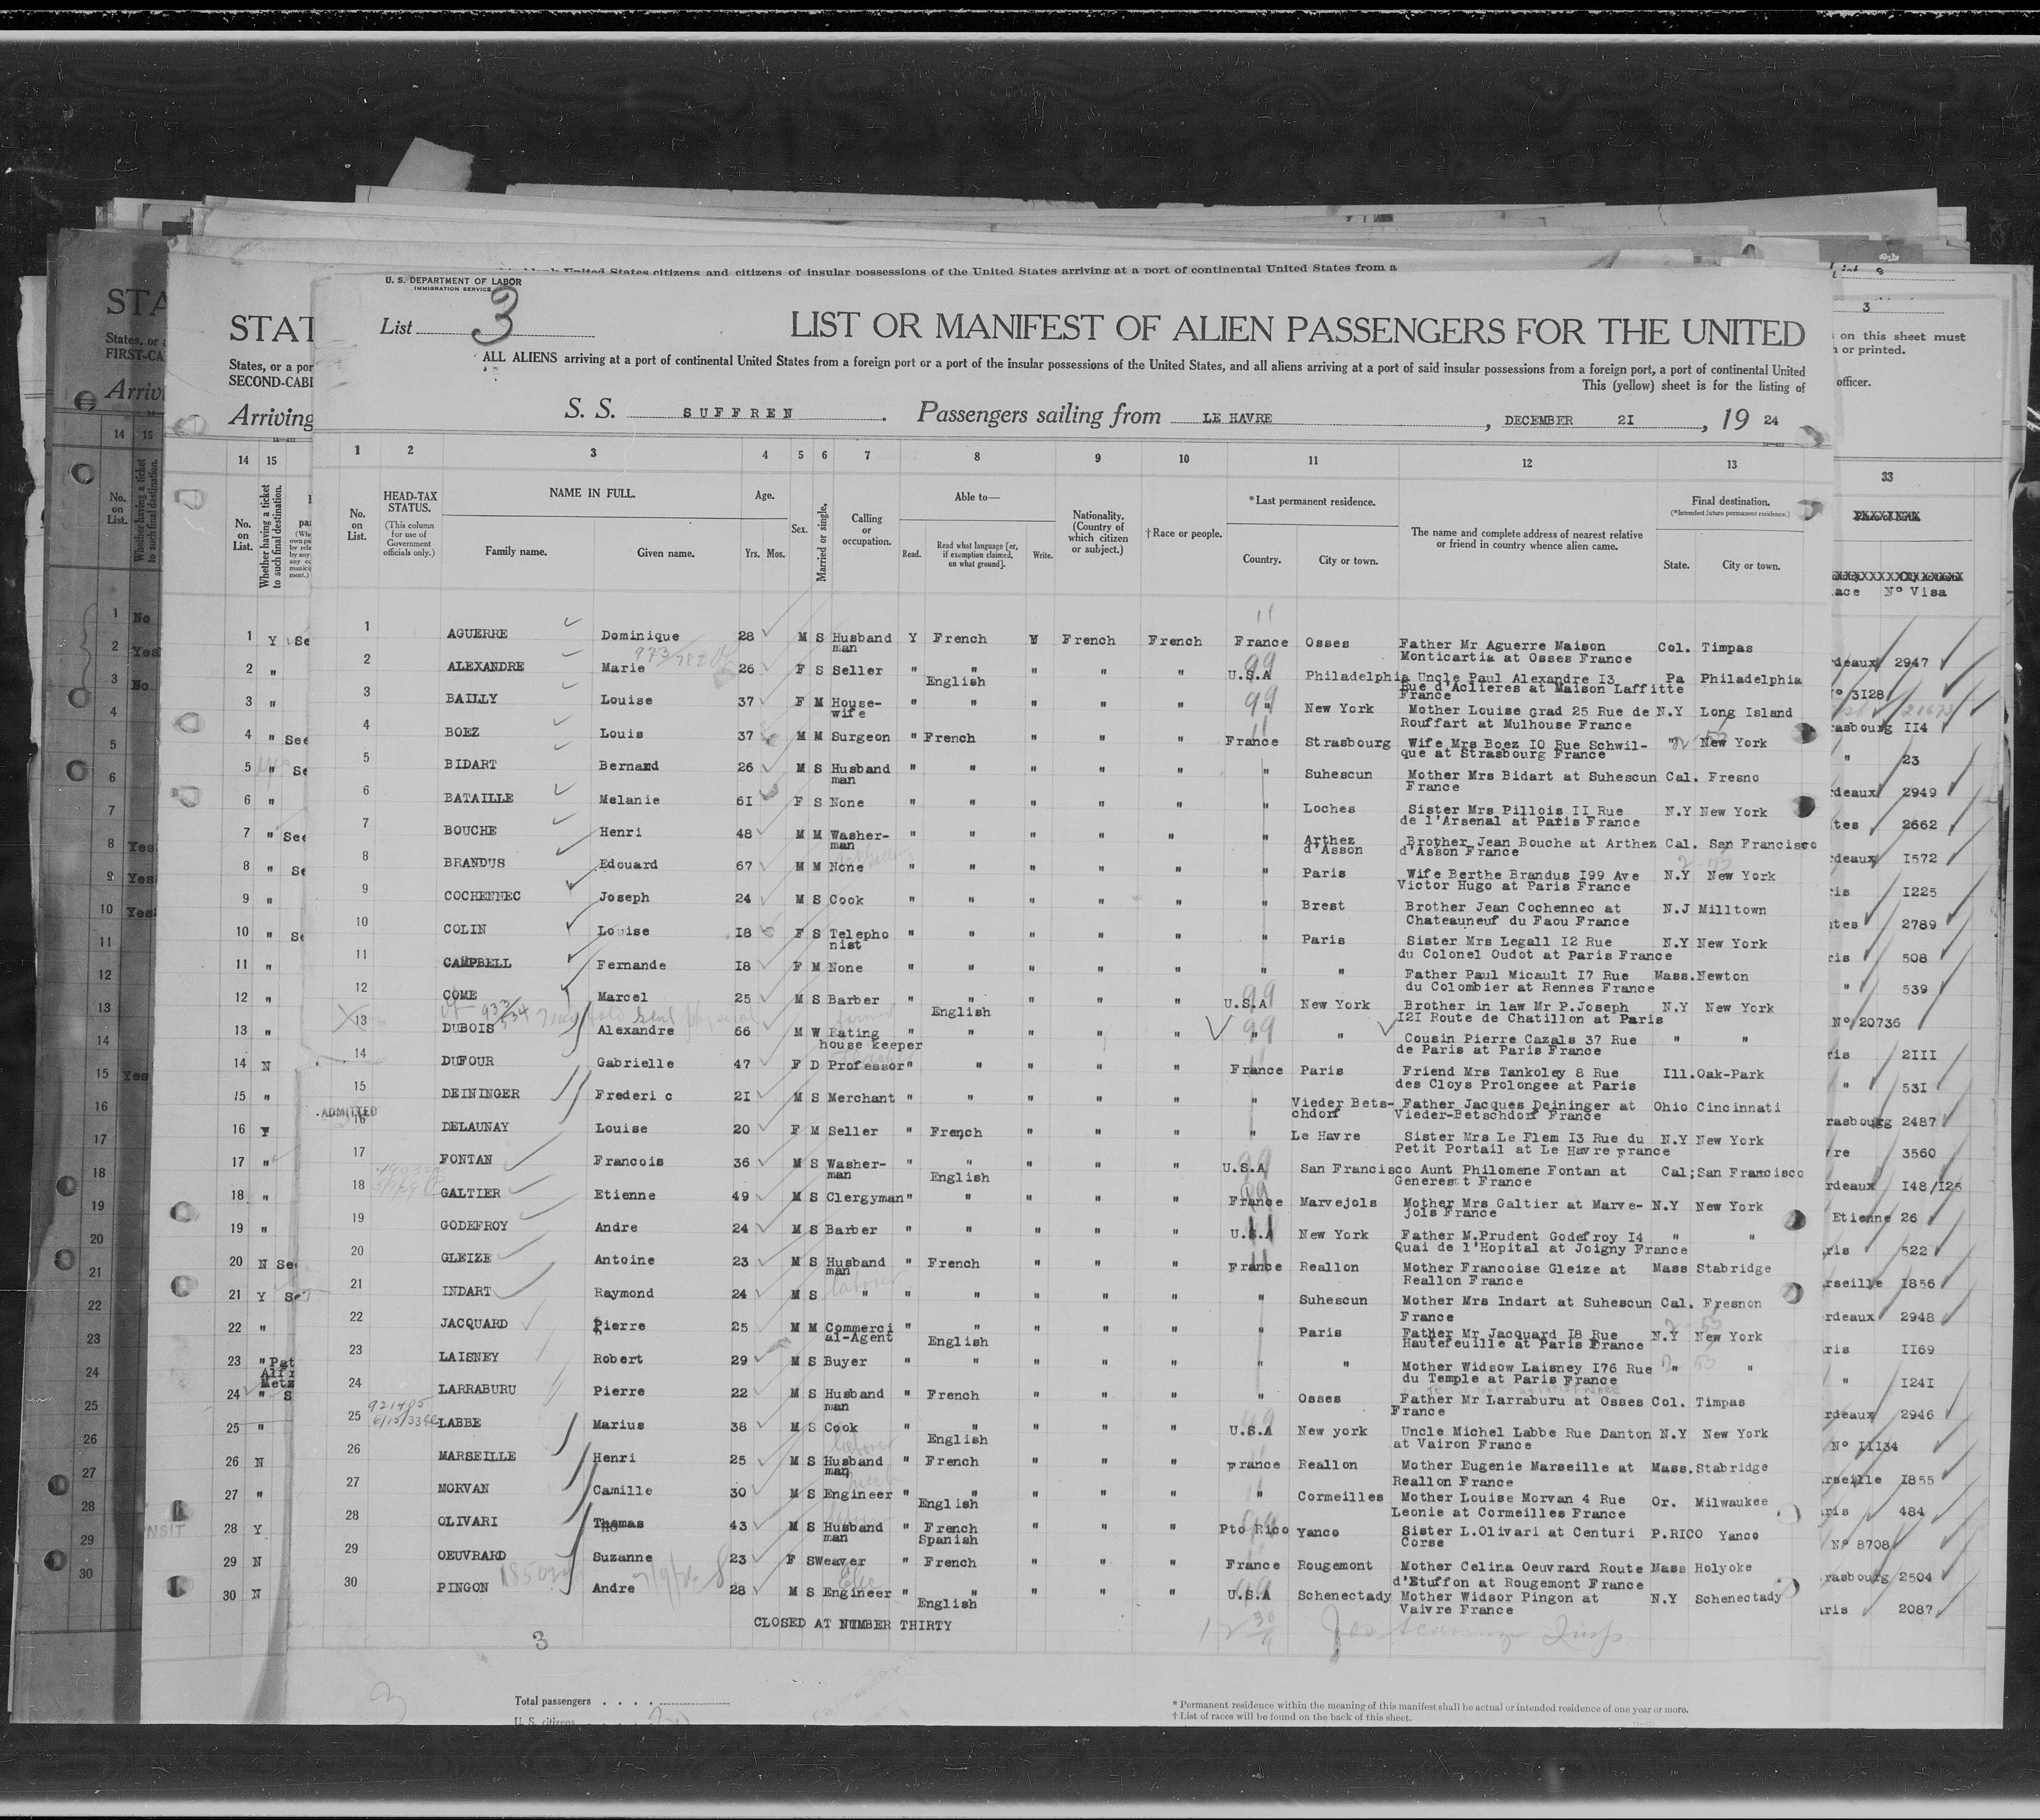 U. S. DEPARTMENT OF LABOR
IMMIGRATION SERVICE
List 3
LIST OR MANIFEST OF ALIEN PASSENGERS FOR THE UNITED
ALL ALIENS arriving at a port of continental United States from a foreign port or a port of the insular possessions of the United States, and all aliens arriving at a port of said insular possessions from a foreign port, a port of continental United
This (yellow) sheet is for the listing of
S. S. SUFFREN. Passengers sailing from LE HAVRE, DECEMBER 2I, 19 24
1 2 3 4 5 6 7 8 9 10 11 12 13
No. on List. HEAD-TAX STATUS. (This column for use of Government officials only.) NAME IN FULL. Family name. Given name. Age. Yrs. Mos. Sex. Married or single. Calling or occupation. Able to— Read. Read what language [or, if exemption claimed, on what ground]. Write. Nationality. (Country of which citizen or subject.) †Race or people. *Last permanent residence. Country. City or town. The name and complete address of nearest relative or friend in country whence alien came. Final destination. (*Intended future permanent residence.) State. City or town.
1 AGUERRE Dominique 28 M S Husband man Y French W French French France Osses Father Mr Aguerre Maison Monticartia at Osses France Col. Timpas
2 ALEXANDRE Marie 26 F S Seller " " English " " " U.S.A Philadelphia Uncle Paul Alexandre I3 Rue d'Aclieres at Maison Laffitte France Pa Philadelphia
3 BAILLY Louise 37 F M House-wife " " " " " " New York Mother Louise Grad 25 Rue de Rouffart at Mulhouse France N.Y Long Island
4 BOEZ Louis 37 M M Surgeon " French " " " France Strasbourg Wife Mrs Boez IO Rue Schwil-que at Strasbourg France " New York
5 BIDART Bernard 26 M S Husband man " " " " " " Suhescun Mother Mrs Bidart at Suhescun France Cal. Fresno
6 BATAILLE Melanie 6I F S None " " " " " " Loches Sister Mrs Pillois II Rue de l'Arsenal at Paris France N.Y New York
7 BOUCHE Henri 48 M M Washer-man " " " " " " Arthez d'Asson Brother Jean Bouche at Arthez d'Asson France Cal. San Francisco
8 BRANDUS Edouard 67 M M None " " " " " " Paris Wife Berthe Brandus I99 Ave Victor Hugo at Paris France N.Y New York
9 COCHENNEC Joseph 24 M S Cook " " " " " " Brest Brother Jean Cochennec at Chateauneuf du Faou France N.J Milltown
10 COLIN Louise I8 F S Telepho nist " " " " " " Paris Sister Mrs Legall I2 Rue du Colonel Oudot at Paris France N.Y New York
11 CAMPBELL Fernande I8 F M None " " " " " " " Father Paul Micault I7 Rue du Colombier at Rennes France Mass. Newton
12 COME Marcel 25 M S Barber " " English " " " U.S.A New York Brother in law Mr P.Joseph I2I Route de Chatillon at Paris N.Y New York
13 DUBOIS Alexandre 66 M W Eating house keeper " " " " " " " Cousin Pierre Cazals 37 Rue de Paris at Paris France " "
14 DUFOUR Gabrielle 47 F D Professor " " " " " France Paris Friend Mrs Tankoley 8 Rue des Cloys Prolongee at Paris Ill. Oak-Park
15 DEININGER Frederi c 2I M S Merchant " " " " " " Vieder Bets-chdorf Father Jacques Deininger at Vieder-Betschdorf France Ohio Cincinnati
ADMITTED
16 DELAUNAY Louise 20 F M Seller " French " " " " Le Havre Sister Mrs Le Flem I3 Rue du Petit Portail at Le Havre France N.Y New York
17 FONTAN Francois 36 M S Washer-man " " English " " " U.S.A San Francisco Aunt Philomene Fontan at Generest France Cal; San Francisco
18 GALTIER Etienne 49 M S Clergyman " " " " " France Marvejols Mother Mrs Galtier at Marve-jols France N.Y New York
19 GODEFROY Andre 24 M S Barber " " " " " U.S.A New York Father M.Prudent Godefroy I4 Quai de l'Hopital at Joigny France " "
20 GLEIZE Antoine 23 M S Husband man " French " " " France Reallon Mother Francoise Gleize at Reallon France Mass Stabridge
21 INDART Raymond 24 M S " " " " " " " Suhescun Mother Mrs Indart at Suhescun France Cal. Fresnon
22 JACQUARD Pierre 25 M M Commerci al-Agent " " English " " " " Paris Father Mr Jacquard I8 Rue Hautefeuille at Paris France N.Y New York
23 LAISNEY Robert 29 M S Buyer " " " " " " " Mother Widsow Laisney I76 Rue du Temple at Paris France " "
24 LARRABURU Pierre 22 M S Husband man " French " " " " Osses Father Mr Larraburu at Osses France Col. Timpas
25 LABBE Marius 38 M S Cook " " English " " " U.S.A New york Uncle Michel Labbe Rue Danton at Vairon France N.Y New York
26 MARSEILLE Henri 25 M S Husband man " French " " " France Reallon Mother Eugenie Marseille at Reallon France Mass. Stabridge
27 MORVAN Camille 30 M S Engineer " " English " " " " Cormeilles Mother Louise Morvan 4 Rue Leonie at Cormeilles France Or. Milwaukee
28 OLIVARI Thomas 43 M S Husband man " French Spanish " " " Pto Rico Yanco Sister L.Olivari at Centuri Corse P.RICO Yanco
29 OEUVRARD Suzanne 23 F S Weaver " French " " " France Rougemont Mother Celina Oeuvrard Route d'Etuffon at Rougemont France Mass Holyoke
30 PINGON Andre 28 M S Engineer " " English " " " U.S.A Schenectady Mother Widsor Pingon at Vaivre France N.Y Schenectady
CLOSED AT NUMBER THIRTY
3
Total passengers
U. S. citizens
* Permanent residence within the meaning of this manifest shall be actual or intended residence of one year or more.
† List of races will be found on the back of this sheet.
STAT
States, or a por
SECOND-CABI
Arriving
14 15
No. on List. Whether having a ticket to such final destination.
on this sheet must
or printed.
officer.
33
Nº Visa
2947
3I28
II4
23
2949
2662
I572
I225
2789
508
539
Nº 20736
2III
53I
2487
3560
I48/I25
Etienne 26
522
I856
2948
II69
I24I
2946
Nº III34
I855
484
Nº 8708
2504
2087